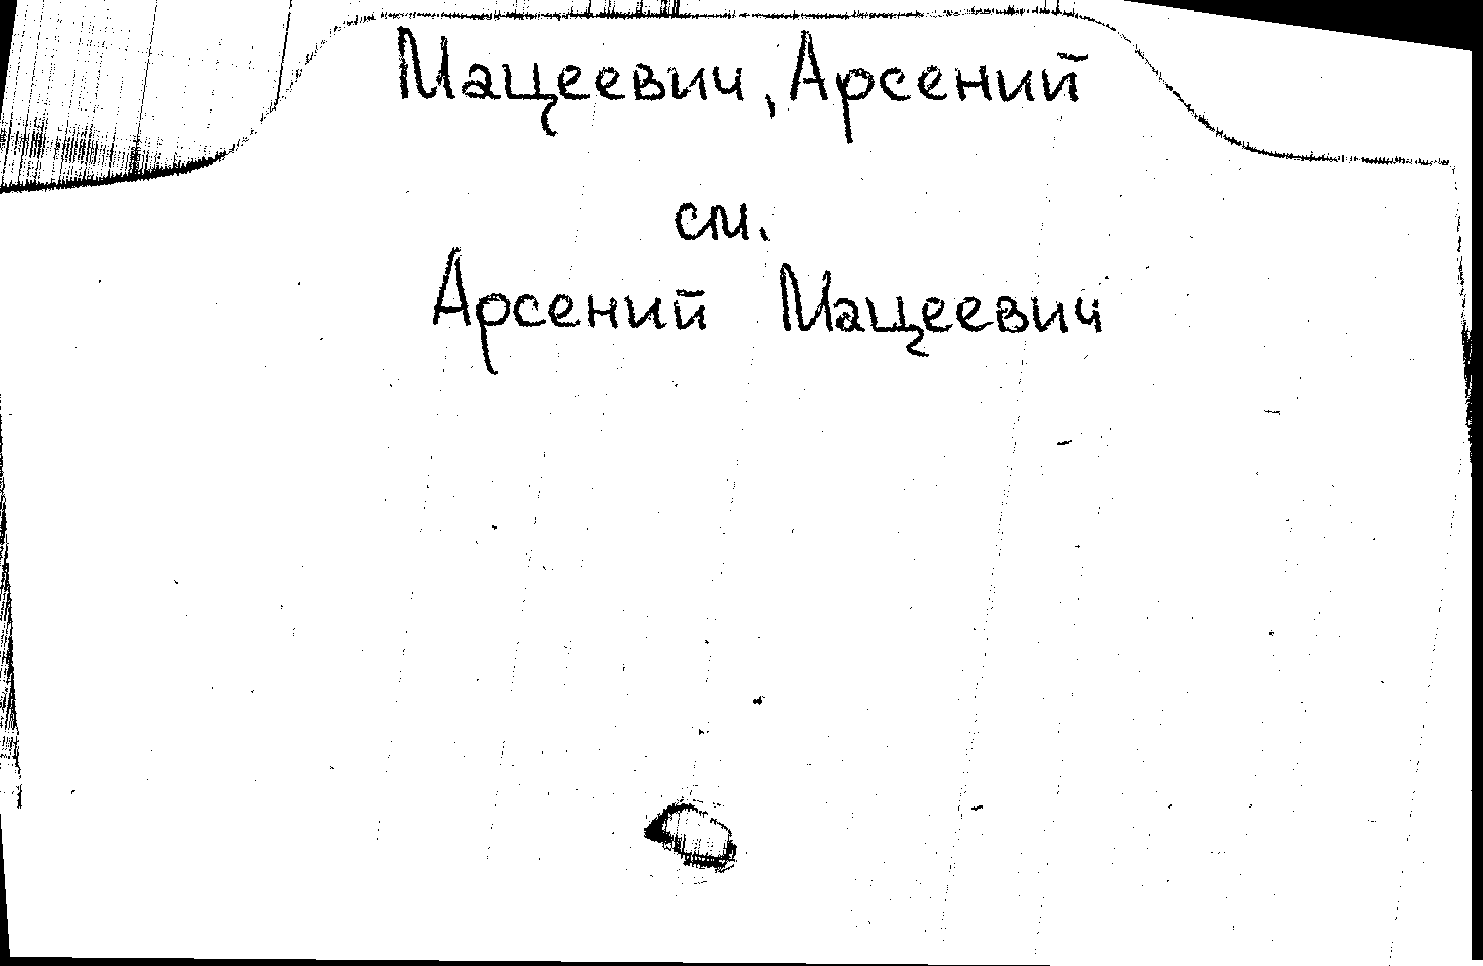 Мацеевич, Арсений
см.
Арсений Мацеевич